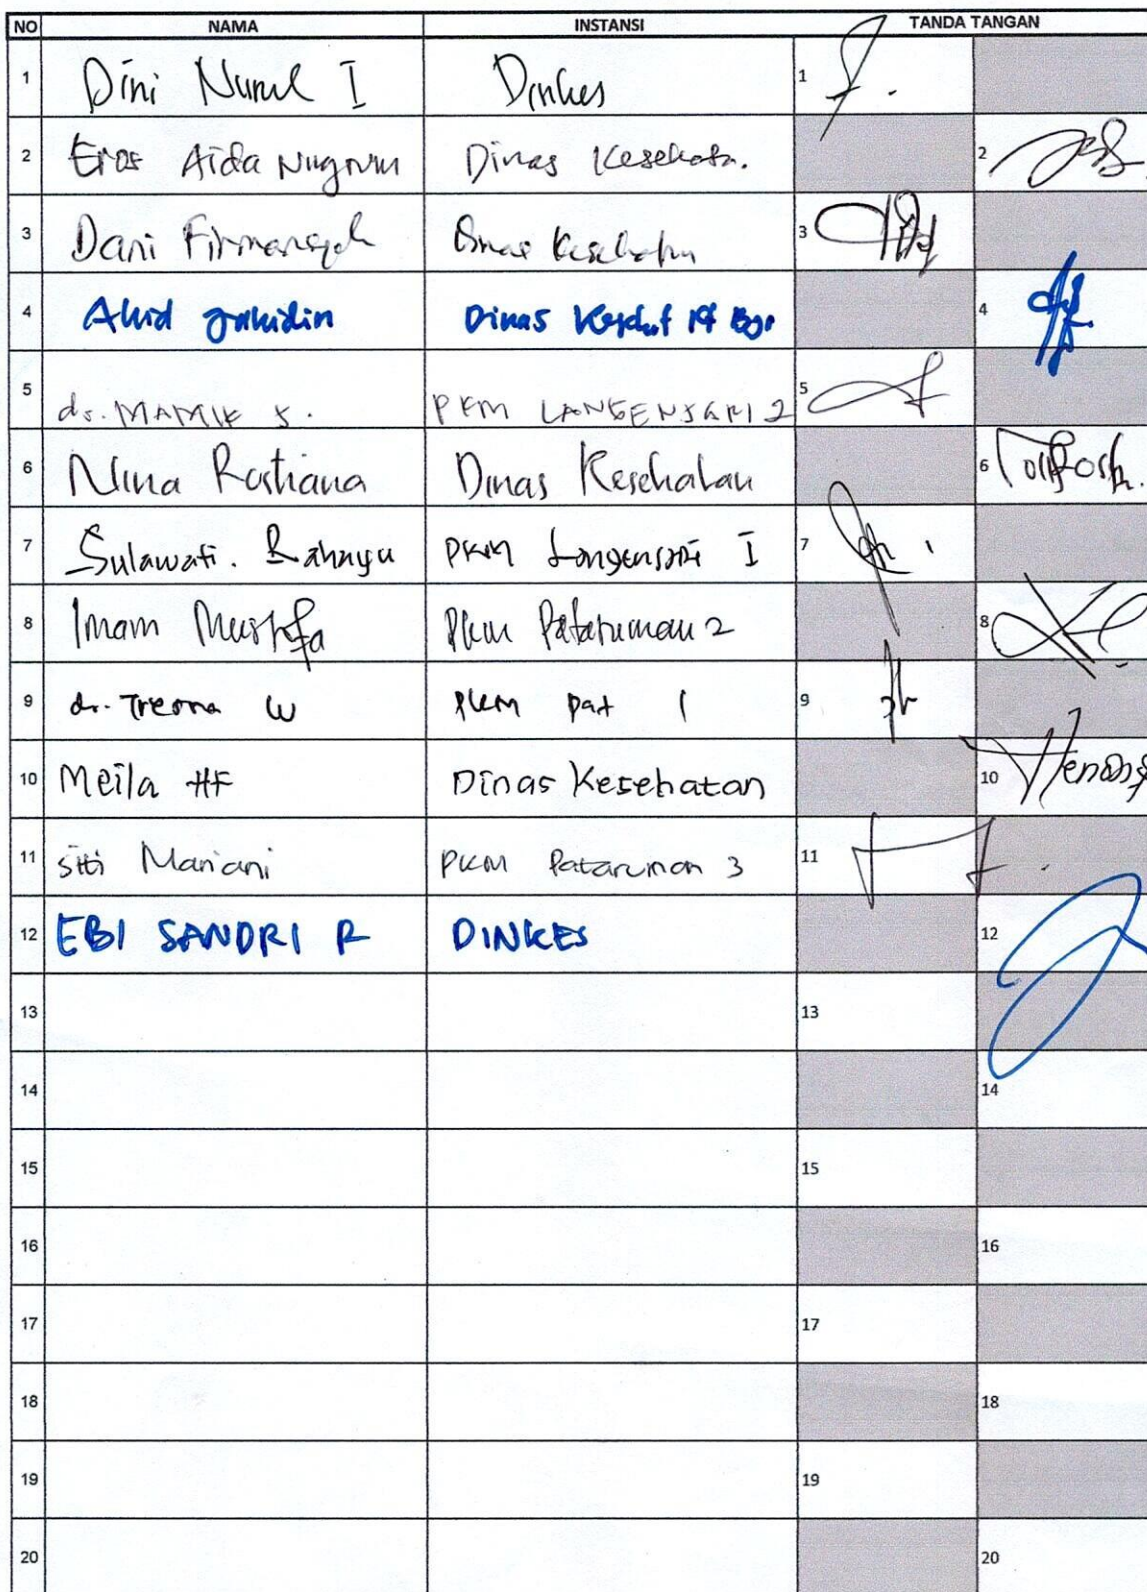 NO NAMA INSTANSI TANDA TANGAN
1 Dini Nurul I Dinkes 1
2 Eros Aida Dinas Kesehata. 2
3 Dani Firmansyah Dinas Kesehatan 3
4 Ahid Dinas 4
5 dr. MAMIK S. PKM LANGENSARI 2 5
6 Nina Rostiana Dinas Kesehatan 6
7 Sulawati. Rahayu PKM Langensari I 7
8 Imam Mustofa Pkm Pataruman 2 8
9 dr. Tresna W pkm pat 1 9
10 Meila HF Dinas Kesehatan 10
11 siti Mariani PKM Pataruman 3 11
12 EBI SANDRI R DINKES 12
13 13
14 14
15 15
16 16
17 17
18 18
19 19
20 20